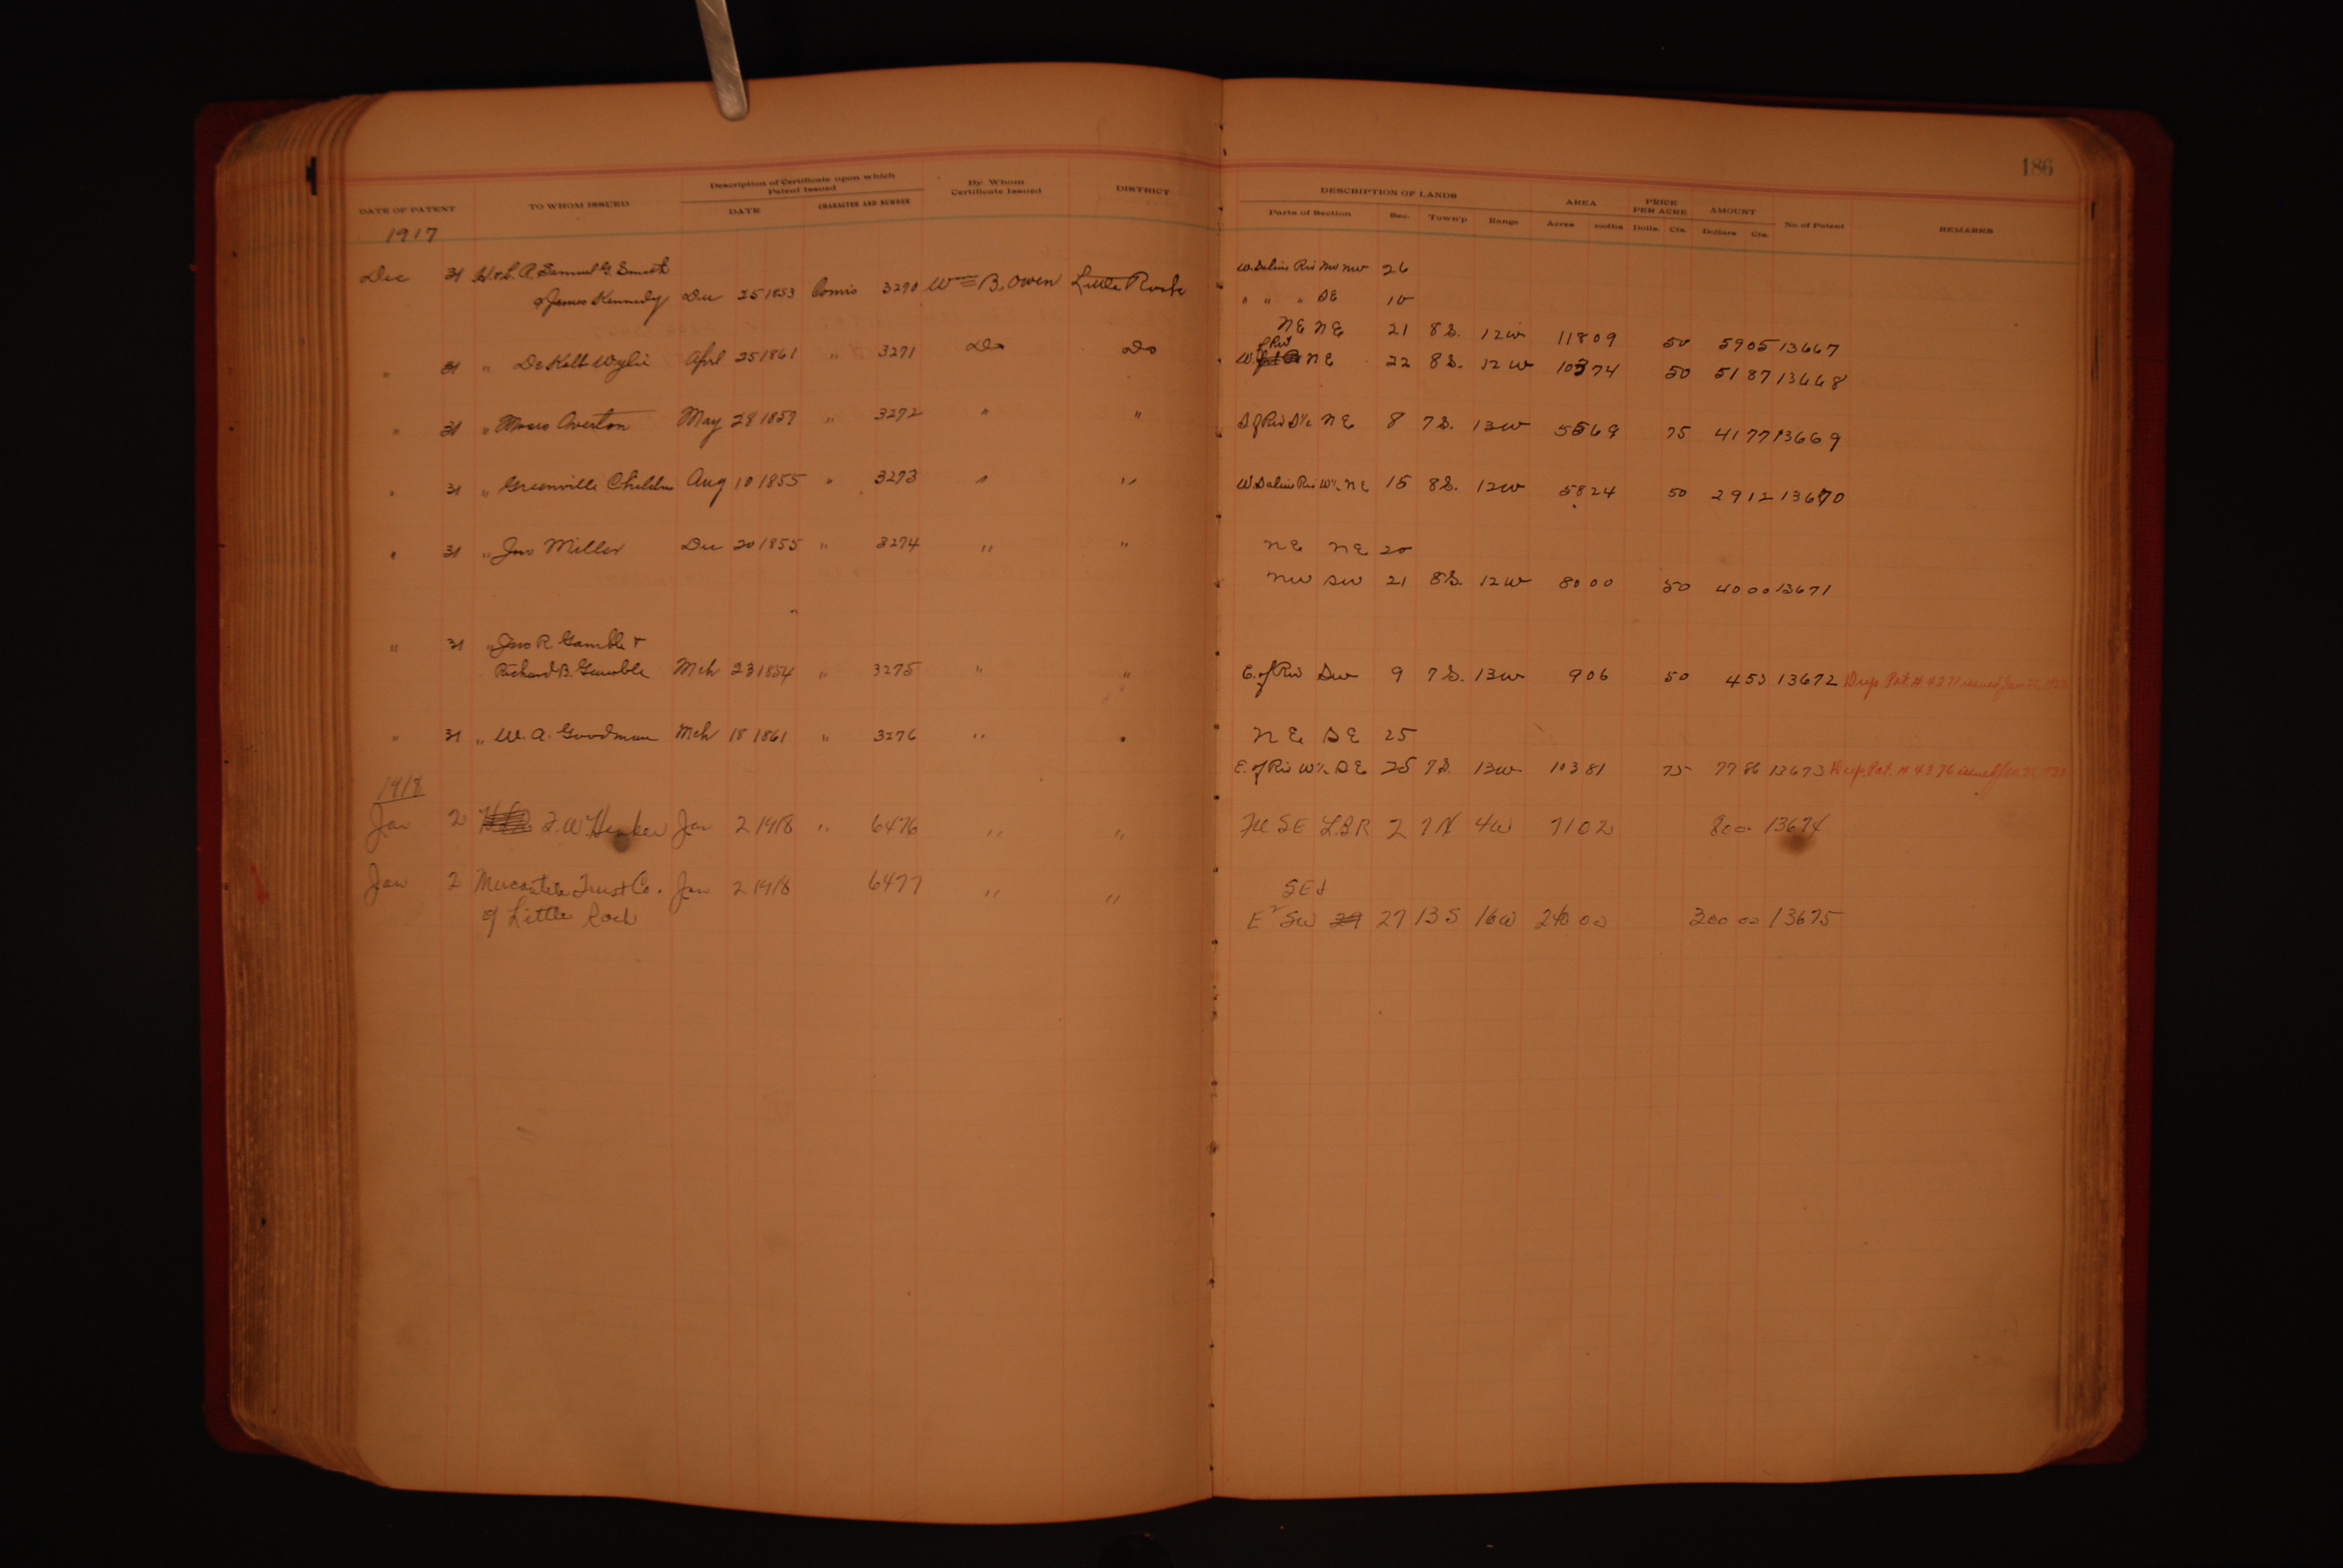 186
DATE OF PATENT TO WHOM ISSUED Description of Certificate upon which Patent Issued DATE CHARACTER AND NUMBER By Whom Certificate Issued DISTRICT DESCRIPTION OF LANDS Parts of Section Sec. Town'p Range AREA Acres 100ths PRICE PER ACRE Dolls. Cts. AMOUNT Dollars Cts. No. of Patent REMARKS
1917
Dec 31 H & L. R. Samuel G. Smith W. Saline Riv NW NW 26
& James Kennedy Dec 25 1853 Comis 3270 Wm B. Owen Little Rock " " " SE 10
NE NE 21 8 S. 12 W 118 09 50 59 05 13667
" 31 " DeKalb Wylie April 25 1861 " 3271 Do Do W. of Riv NE 22 8 S. 12 W 103 74 50 51 87 13668
" 31 " Moses Overton May 28 1857 " 3272 " " S of Riv S½ NE 8 7 S. 13 W 55 69 75 41 77 13669
" 31 " Greenville Aug 10 1855 " 3273 " " W. Saline Riv W½ NE 15 8 S. 12 W 58 24 50 29 12 13670
" 31 " Jno Miller Dec 20 1855 " 3274 " " NE NE 20
NW SW 21 8 S. 12 W 80 00 50 40 00 13671
" 31 " Jno R. Gamble &
Richard B. Gamble Mch 23 1854 " 3275 " " E. of Riv SW 9 7 S. 13 W 9 06 50 4 53 13672 Dup. Pat. # 4371 issued Jan
" 31 " W. A. Goodman Mch 18 1861 " 3276 " " NE SE 25
E. of Riv W½ SE 25 7 S. 13 W 103 81 75 77 86 13673 Dup. Pat. # 4376 issued
1918
Jan 2 F. W. Jan 2 1918 " 6476 " " SE 2 7 N 4 W 71 02 8 00 13674
Jan 2 Mercantile Trust Co. Jan 2 1918 6477 " " SE &
of Little Rock E² SW 27 13 S 16 W 240 00 300 00 13675